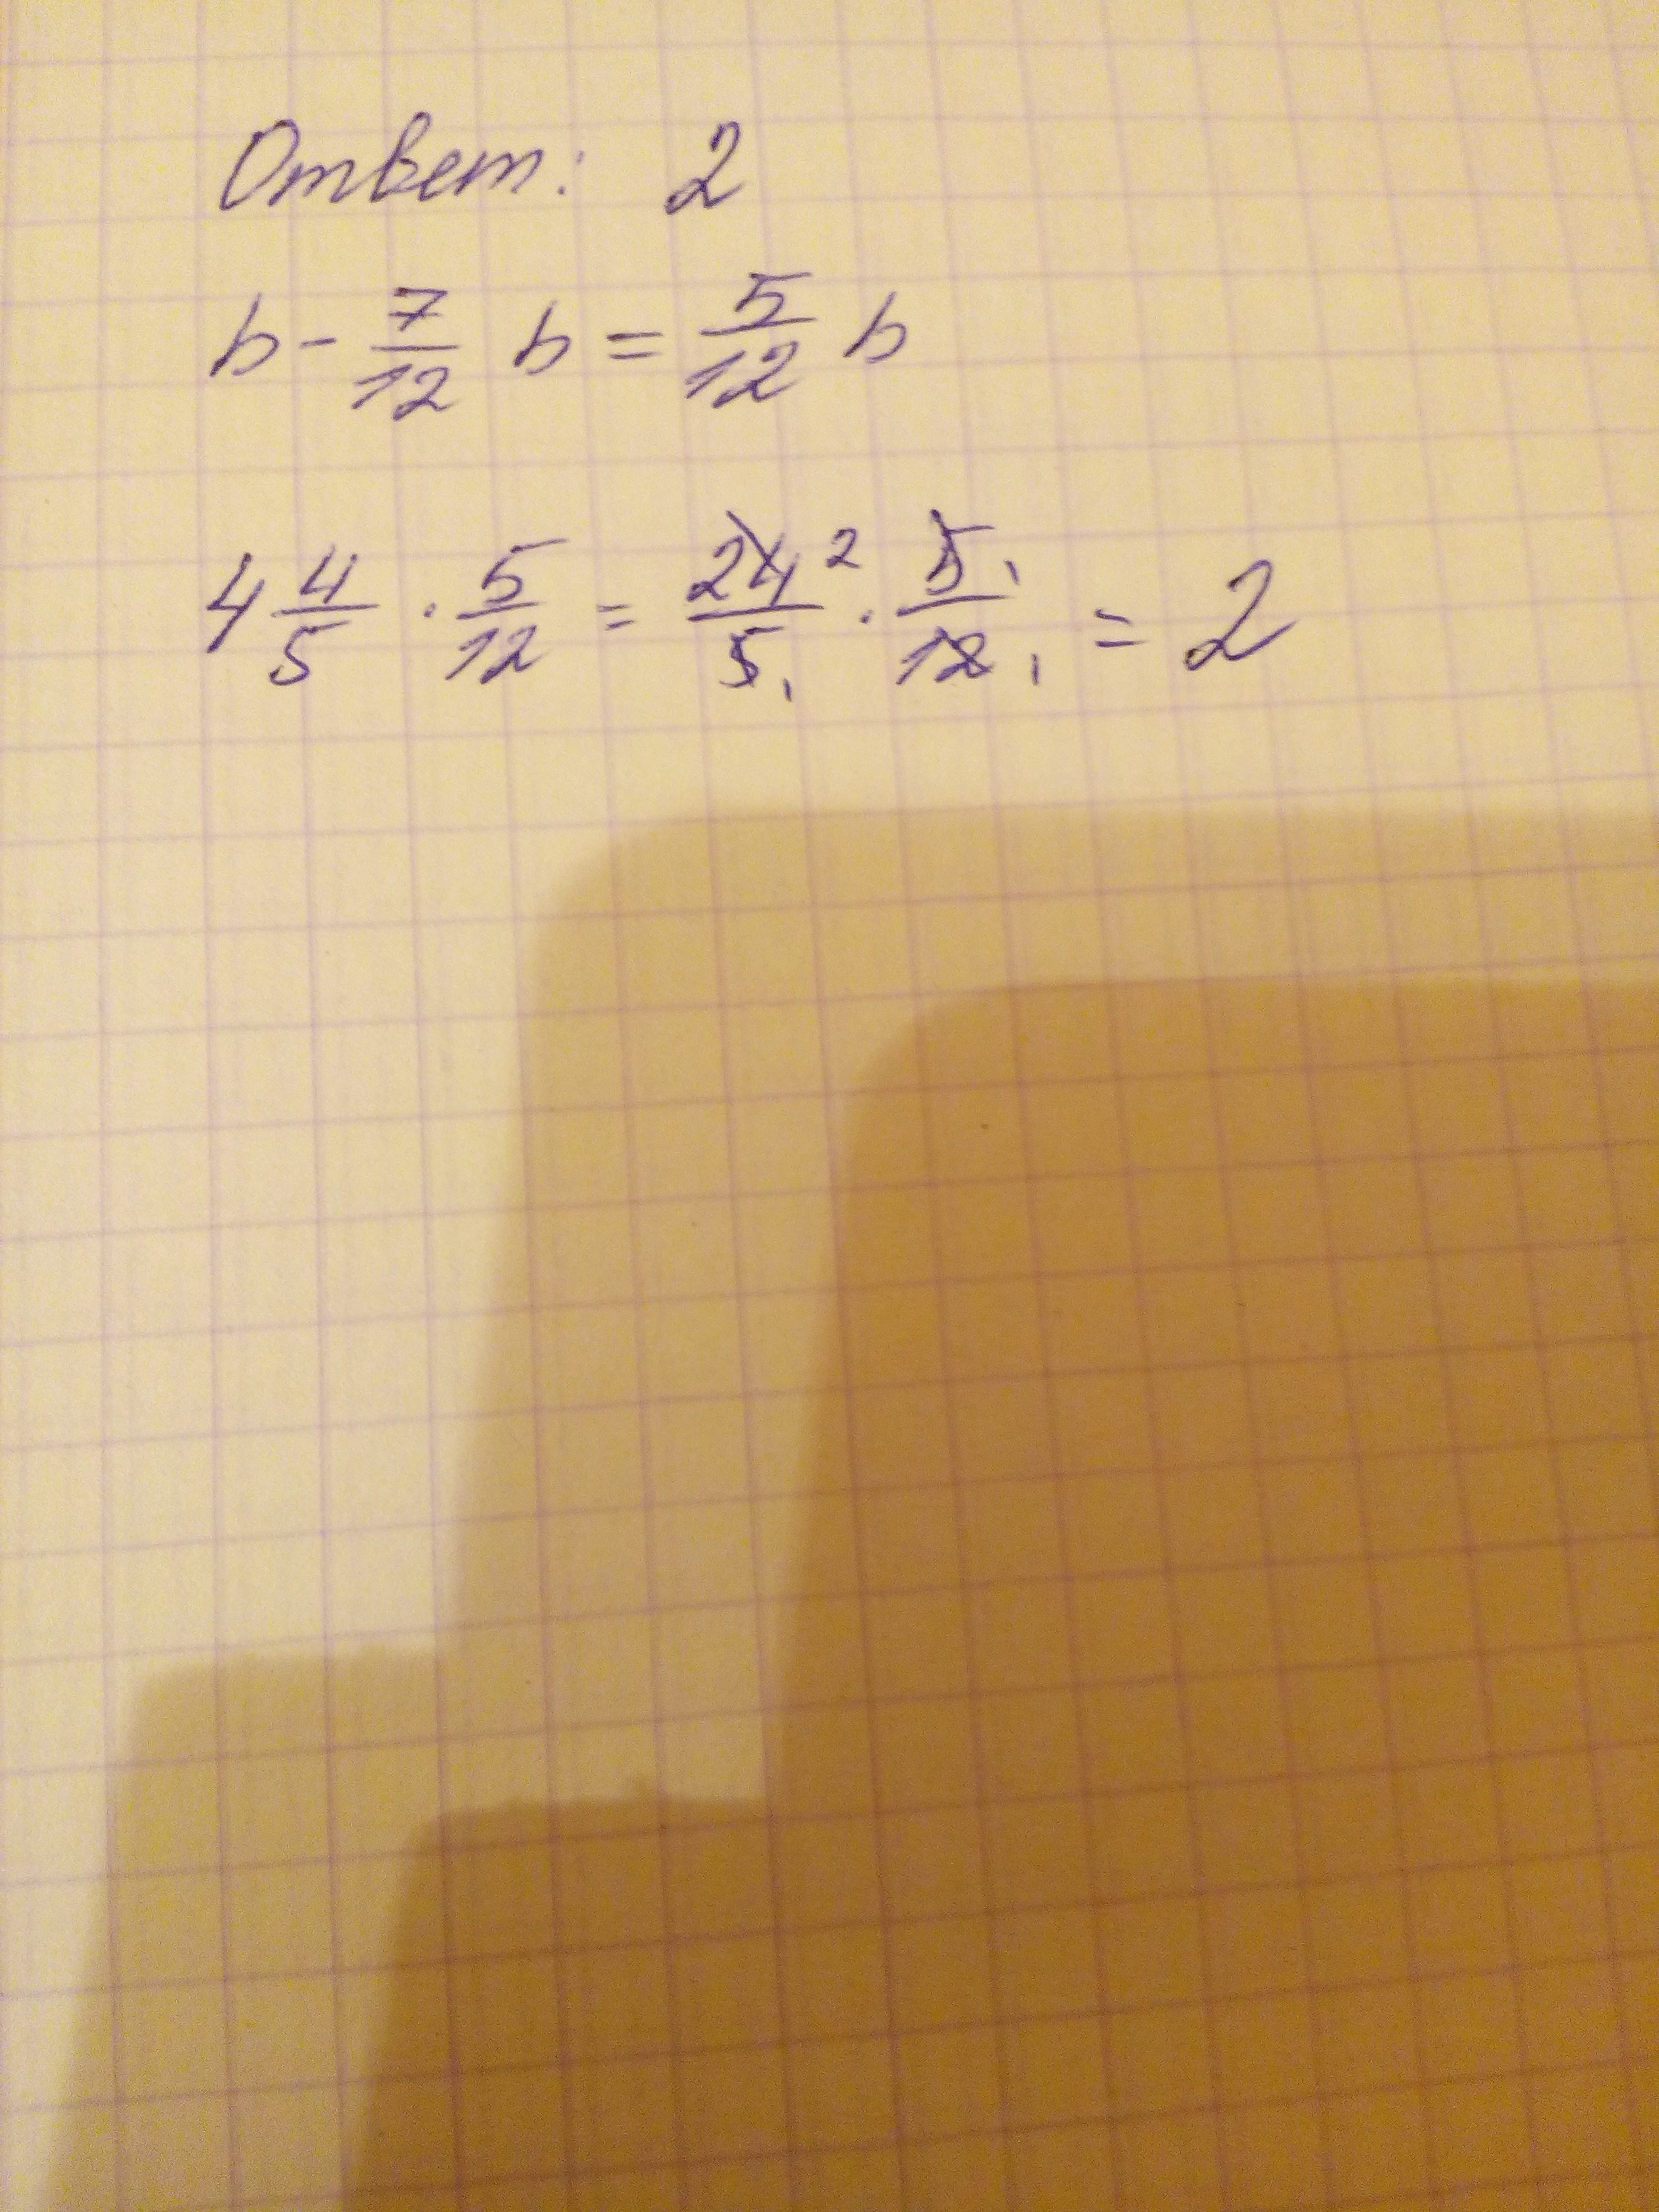 Ответ: 2
b - 7/12 b = 5/12 b
4 4/5 · 5/12 = 24 2/5 1 · 5 1/12 1 = 2